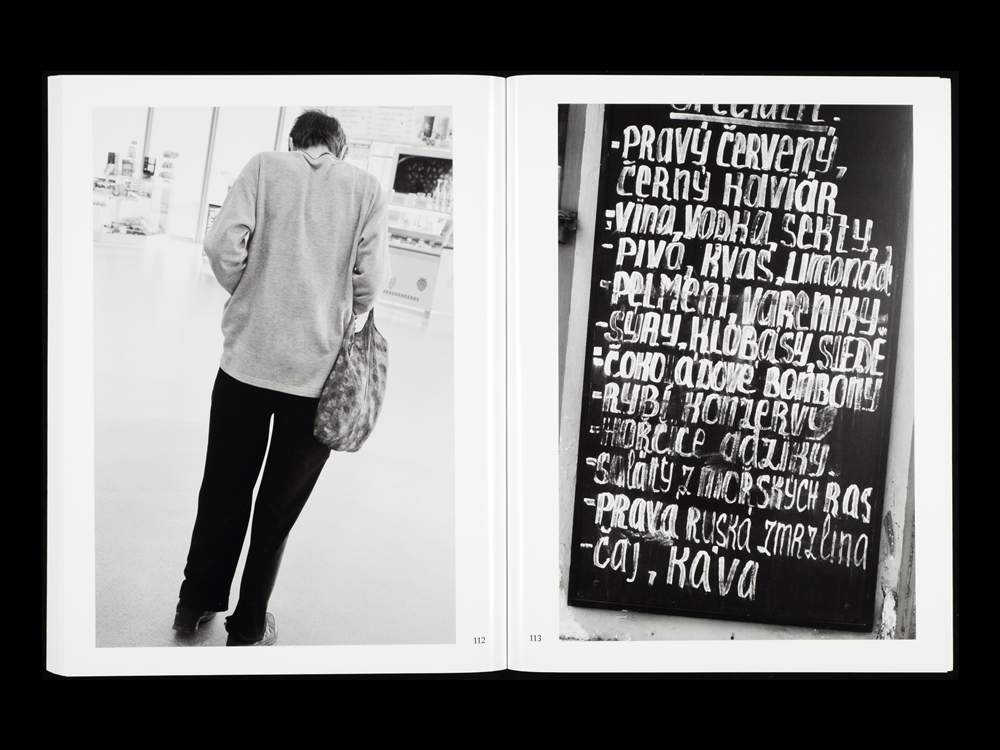 112
- PRAVÝ ČERVENÝ,
ČERNÝ KAVIÁR
- VÍNA, VODKA, SEKTY,
- PIVO, KVAS, LIMONÁD
- PELMENI, VARENIKY.
- SÝRY, KLOBÁSY, SLEDĚ
- ČOKOLÁDOVÉ BONBONY
- RYBÍ KONZERVY
- HOŘČICE
- Saláty Z MOŘSKÝCH ŘAS
- PRAVÁ RUSKÁ ZMRZlina
- Čaj, Káva
113